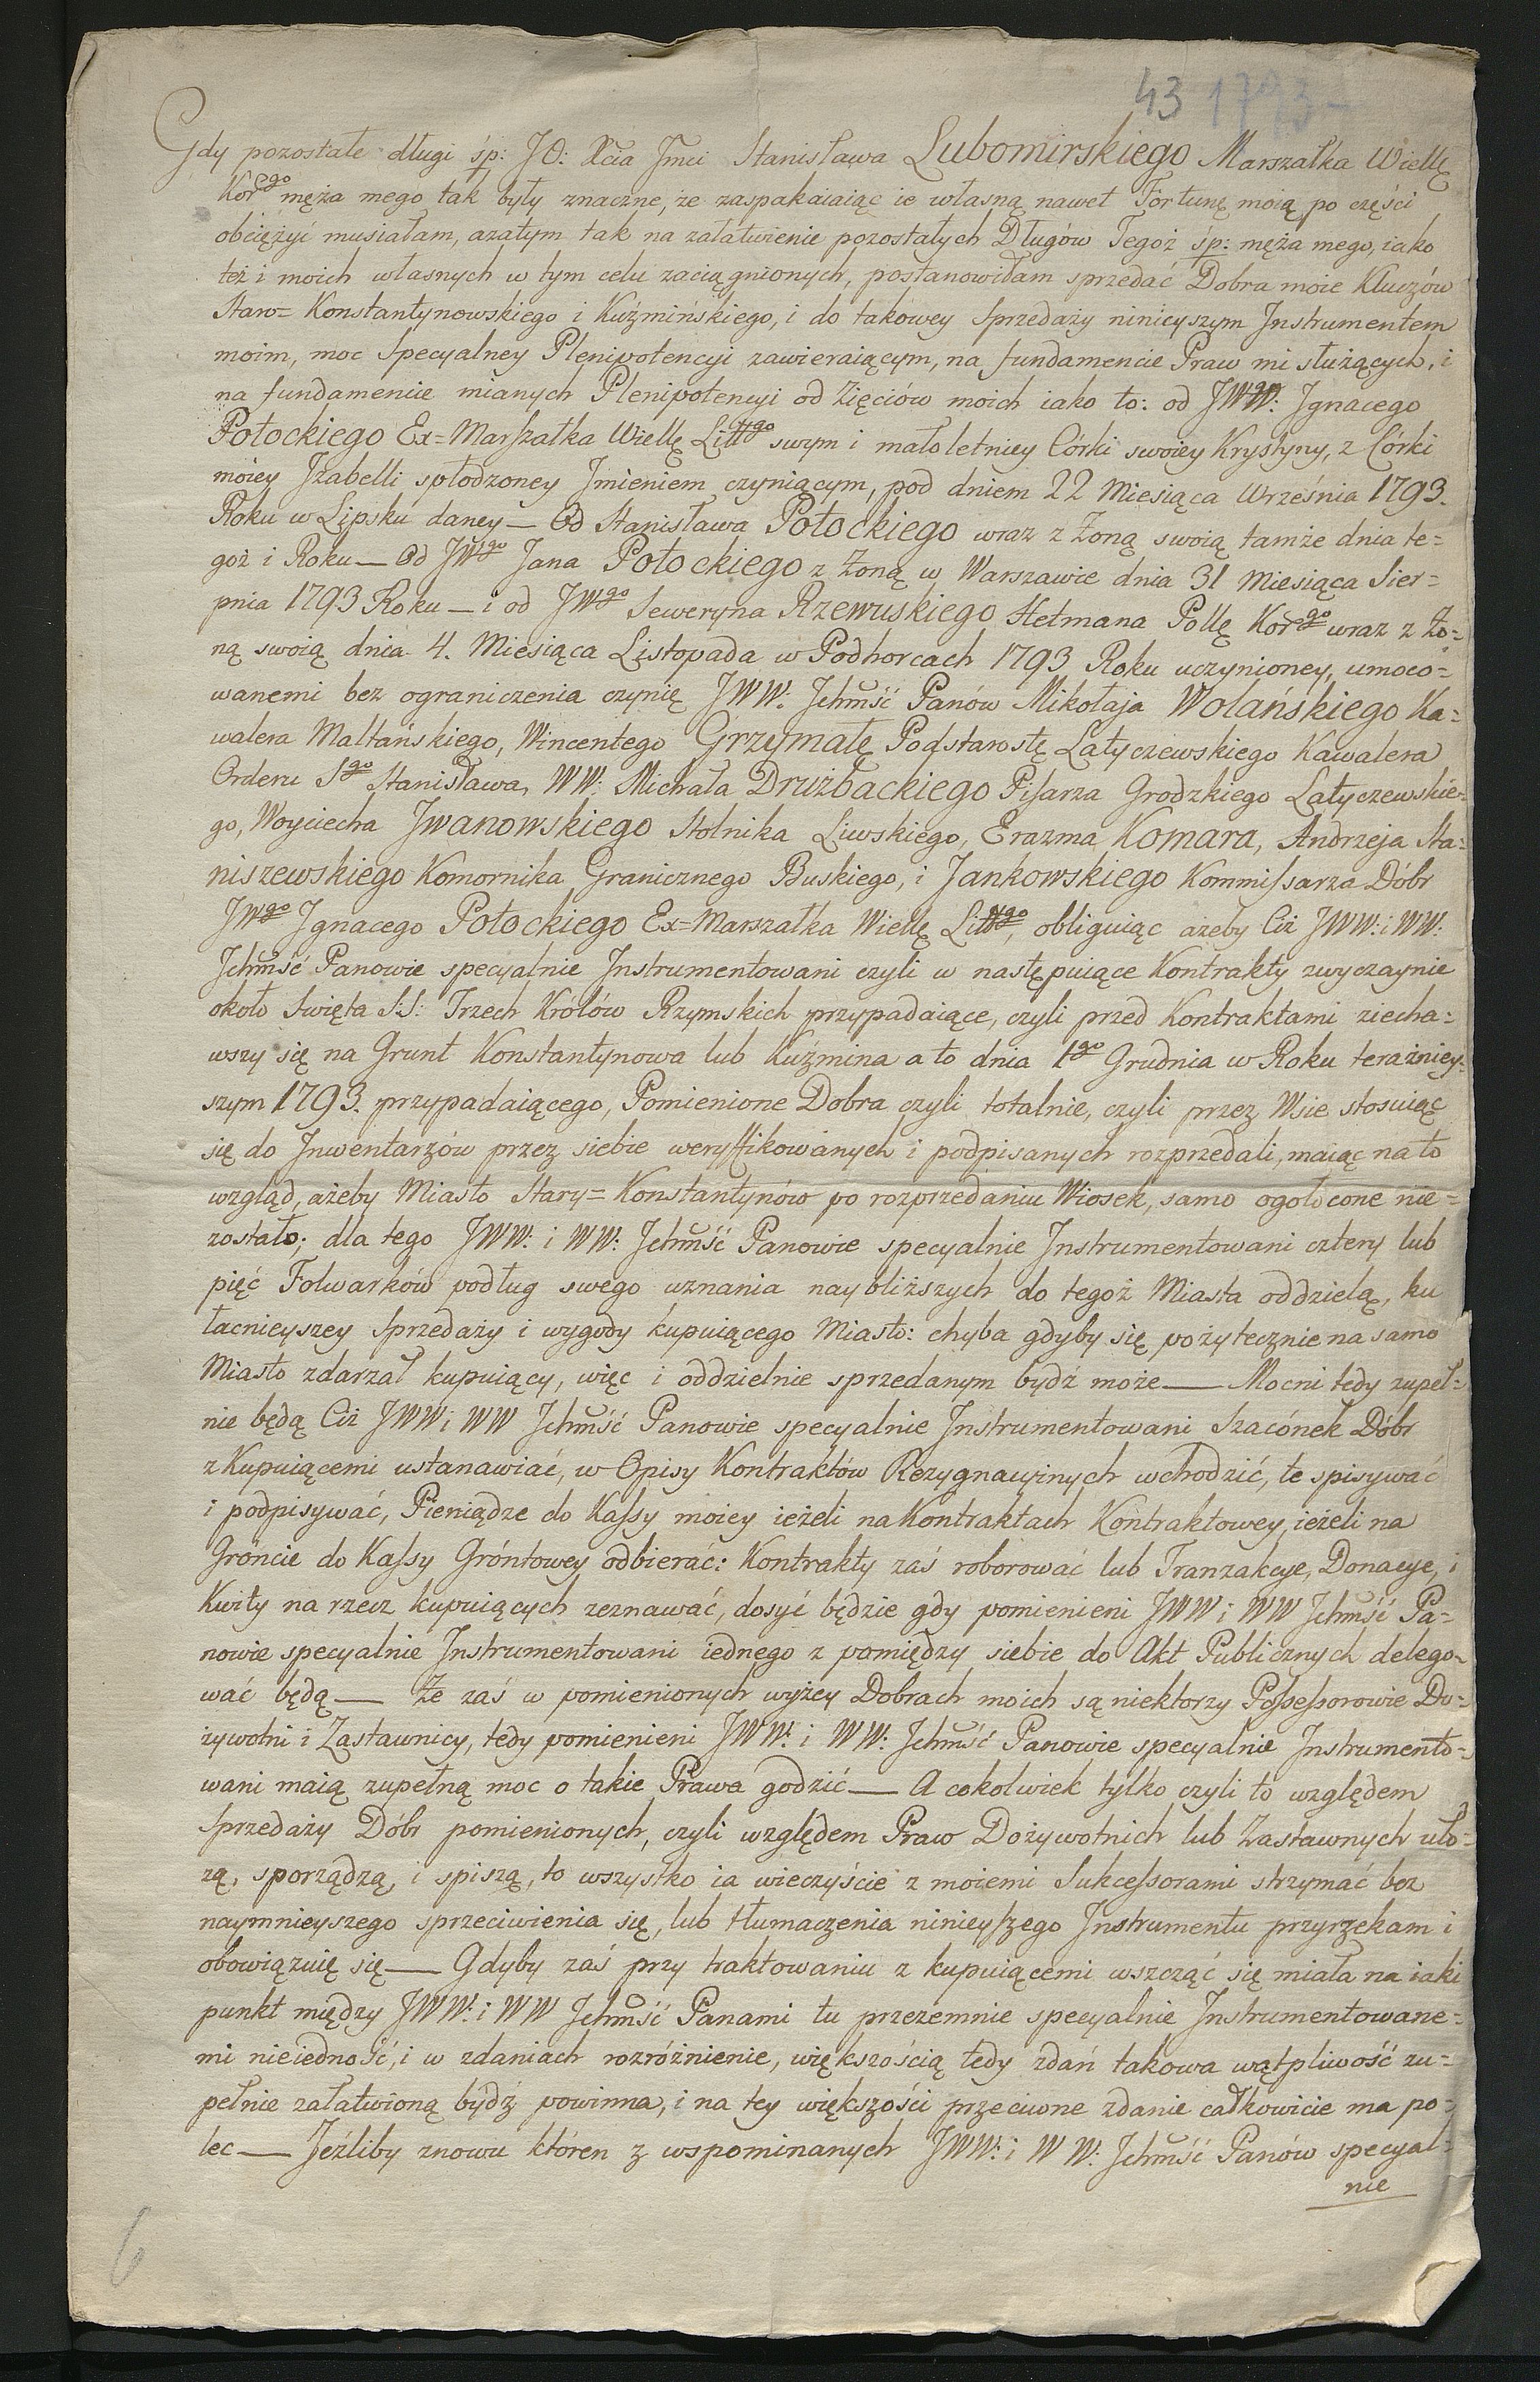 43 1793-
Gdy pozostałe długi śp: JO: Xcia Jmci Stanisława Lubomirskiego Marszałka Wielkę
Korrego męża mego tak były znaczne, że zaspakaiaiąc ie własną nawet Fortunę moią po części
obciężyć musiałam, azatym tak na załatwienie pozostałych Długów Tegoż śp: męża mego, iako
też i moich własnych w tym celu zaciągnionych, postanowiłam sprzedać Dobra moie Kluczów
Staro= Konstantynowskiego i Kuźmińskiego, i do takowey Sprzedaży ninieyszym Instrumentem
moim, moc Specyalney Plenipotencyi zawieraiącym, na fundamencie Praw mi służących, i
na fundamencie mianych Plenipotencyi od Zięciów moich iako to: od JWW: Jgnacego
Potockiego Ex=Marszałka Wielkę Littgo swym i małoletniey Córki swoiey Krystyny, z Córki
moiey Jzabelli spłodzoney Jmieniem czyniącym, pod dniem 22 Miesiąca Września 1793.
Roku w Lipsku daney— Od Stanisława Potockiego wraz z Żoną swoią tamże dnia te=
goż i Roku— Od JWgo Jana Potockiego z Żoną w Warszawie dnia 31 Miesiąca Sier=
pnia 1793 Roku— i od JWgo Seweryna Rzewuskiego Hetmana Pollę Korgo wraz z Żo=
ną swoią dnia 4. Miesiąca Listopada w Podhorcach 1793 Roku uczynioney, umoco=
wanemi bez ograniczenia czynię JWW: Jchmść Panów Mikołaja Wolańskiego Ka=
walera Maltańskiego, Wincentego Grzymałę Podstarostę Latyczewskiego Kawalera
Orderu Sgo Stanisława, WW: Michała Drużbackiego Pisarza Grodzkiego Latyczewskie=
go, Woyciecha Jwanowskiego Stolnika Liwskiego, Erazma Komara, Andrzeja Sta=
niszewskiego Komornika Granicznego Buskiego, i Jankowskiego Kommissarza Dóbr
JWgo Jgnacego Potockiego Ex=Marszałka Wielkę Littgo, obliguiąc ażeby Ciż JWW: i WW:
Jchmść Panowie specyalnie Instrumentowani czyli w następuiące Kontrakty zwyczaynie
około Swięta S:S: Trzech Królów Rzymskich przypadaiące, czyli przed Kontraktami ziecha=
wszy się na Grunt Konstantynowa lub Kuźmina a to dnia 1go Grudnia w Roku teraźniey=
szym 1793. przypadaiącego, Pomienione Dobra czyli totalnie, czyli przez Wsie stosuiąc
się do Jnwentarzów przez siebie weryffikowanych i podpisanych rozprzedali, maiąc na to
wzgląd, ażeby Miasto Stary=Konstantynów po rozprzedaniu Wiosek, samo ogołocone nie=
zostało; dla tego JWW: i WW: Jchmść Panowie specyalnie Instrumentowani cztery lub
pięć Folwarków podług swego uznania naybliższych do tegoż Miasta oddzielą, ku
łacnieyszey Sprzedaży i wygody kupuiącego Miasto: chyba gdyby się pożytecznie na samo
Miasto zdarzał kupuiący, więc i oddzielnie sprzedanym bydź może— Mocni tedy zupeł=
nie będą Ciż JWW i WW Jchmść Panowie specyalnie Instrumentowani Szacónek Dóbr
z Kupuiącemi ustanawiać, w Opisy Kontraktów Rezygnacyinych wchodzić, te spisywać
i podpisywać, Pieniądze do Kassy moiey ieżeli na Kontraktach Kontraktowey, ieżeli na
Gróncie do Kassy Gróntowey odbierać: Kontrakty zaś roborować lub Tranzakcye, Donacye, i
Kwity na rzecz kupuiących zeznawać, dosyć będzie gdy pomienieni JWW i WW Jchmść Pa=
nowie specyalnie Instrumentowani iednego z pomiędzy siebie do Akt Publicznych delego=
wać będą— Że zaś w pomienionych wyżey Dobrach moich są niektorzy Possessorowie Do=
żywotni i Zastawnicy, tedy pomienieni JWW: i WW: Jchmść Panowie specyalnie Instrumento=
wani maią zupełną moc o takie Prawa godzić— A cokolwiek tylko czyli to względem
Sprzedaży Dóbr pomienionych, czyli względem Praw Dożywotnich lub Zastawnych uło=
żą, sporządzą, i spiszą, to wszystko ia wieczyście z moiemi Sukcessorami strzymać bez
naymnieyszego sprzeciwienia się, lub tłumaczenia ninieyszego Instrumentu przyrzekam i
obowiązuię się— Gdyby zaś przy traktowaniu z kupuiącemi wszcząć się miała na iaki
punkt między JWW: i WW Jchmść Panami tu przezemnie specyalnie Instrumentowane=
mi nieiedność, i w zdaniach rozróżnienie, większością tedy zdań takowa wątpliwość zu=
pełnie załatwioną bydź powinna, i na tey większości przeciwne zdanie całkowicie ma po=
lec— Jeźliby znowu któren z wspominanych JWW: i WW: Jchmść Panów specyal=
nie
6